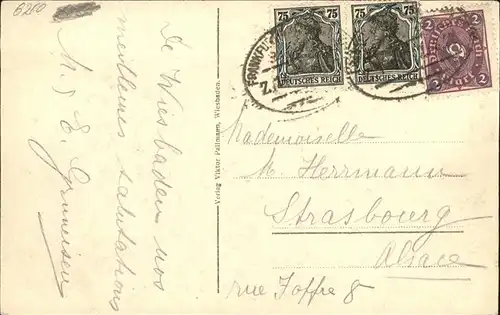 6200
De Wiesbaden nos
meilleures salutations
M. & E. Grunneisen
Verlag Viktor Pöllmann, Wiesbaden.
75 75
DEUTSCHES REICH
75 75
DEUTSCHES REICH
2 2
2 2
Mademoiselle
M Herrmann
Strasbourg
Alsace
rue Joffre 8